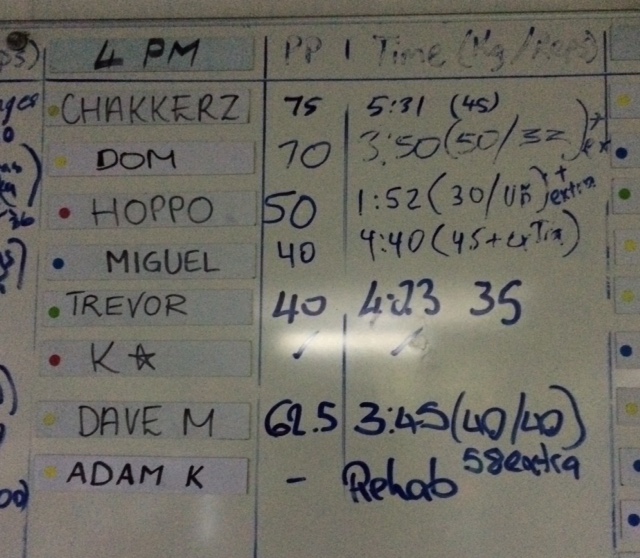 4 PM PP Time (Kg/Reps)
CHAKKERZ 75 5:31 (45)
DOM 70 3:50 (50/32)+ex
HOPPO 50 1:52 (30/UB)+extra
MIGUEL 40 4:40 (45+extra)
TREVOR 40 4:23 35
K☆ / /
DAVE M 62.5 3:45 (40/40)
58 extra
ADAM K - Rehab